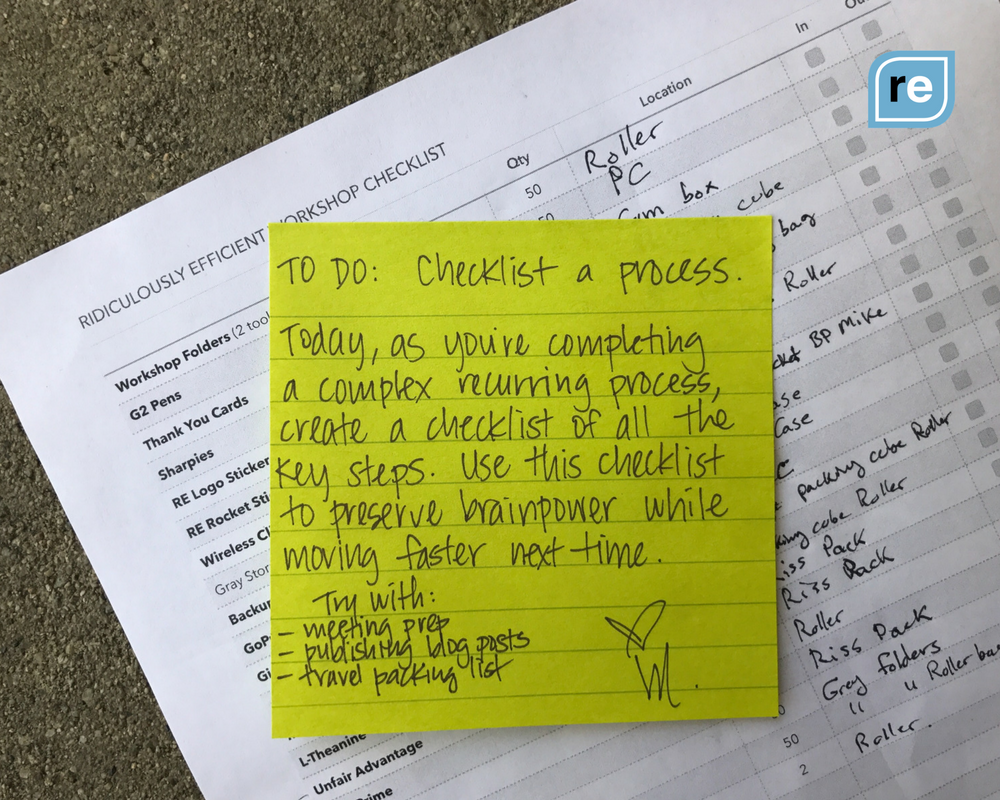 re
In
Location
Qty
RIDICULOUSLY EFFICIENT WORKSHOP CHECKLIST
50 Roller
PC
box
cube
bag
Roller
BP Mike
Case
packing cube Roller
cube Roller
Riss Pack
Riss Pack
Roller
Riss Pack
Grey folders
" " Roller
50 Roller.
2
Workshop Folders (2
G2 Pens
Thank You Cards
Sharpies
RE Logo Sticker
RE Rocket
Wireless
Gray
L-Theanine
Unfair Advantage
TO DO: Checklist a process.
Today, as you're completing
a complex recurring process,
create a checklist of all the
key steps. Use this checklist
to preserve brainpower while
moving faster next time.
Try with:
- meeting prep
- publishing blog posts
- travel packing list
M.